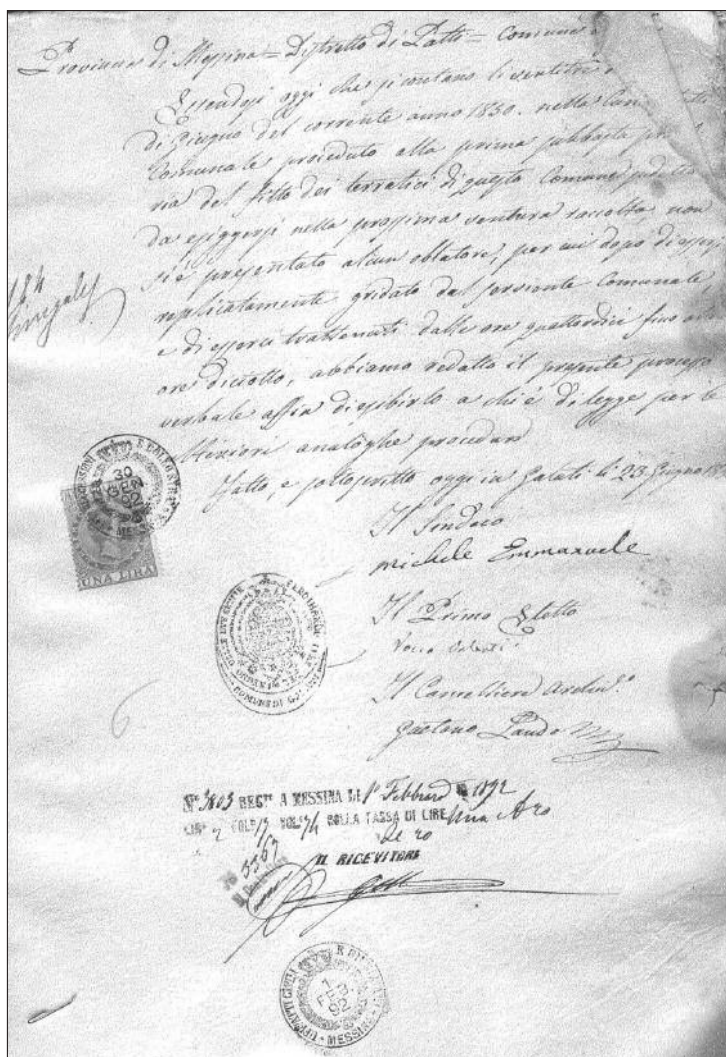 Provincia di Messina = Distretto di Patti = Comune
Essendosi oggi che si contano li ventitre
di Giugno del corrente anno 1850. nella
Comunale proceduto alla prima subbasta
ria del fitto dei terratici di questo Comune
da esiggersi nella prossima ventura raccolta, non
si è presentato alcun oblatore, per cui dopo di essersi
replicatamente gridato dal serviente Comunale,
e di esserci trattenuti dalle ore quattordici fino
ore diciotto, abbiamo redatto il presente processo
verbale affin di esibirlo a chi è di legge per le
ulteriori analoghe procedure
Fatto, e sottoscritto oggi in Galati li 23 Giugno
Il Sindaco
Michele Emmanuele
Il Primo Eletto
Il Cancelliere Archiv.º
Gaetano
30
GEN
UNA LIRA
FERDINANDO
COMUNE DI
6
Nº 3803 REGº A MESSINA LI 1º Febbraro 1892
TASSA DI LIRE Una
IL RICEVITORE
ATTI CIVILI
1
FEB
92
MESSINA